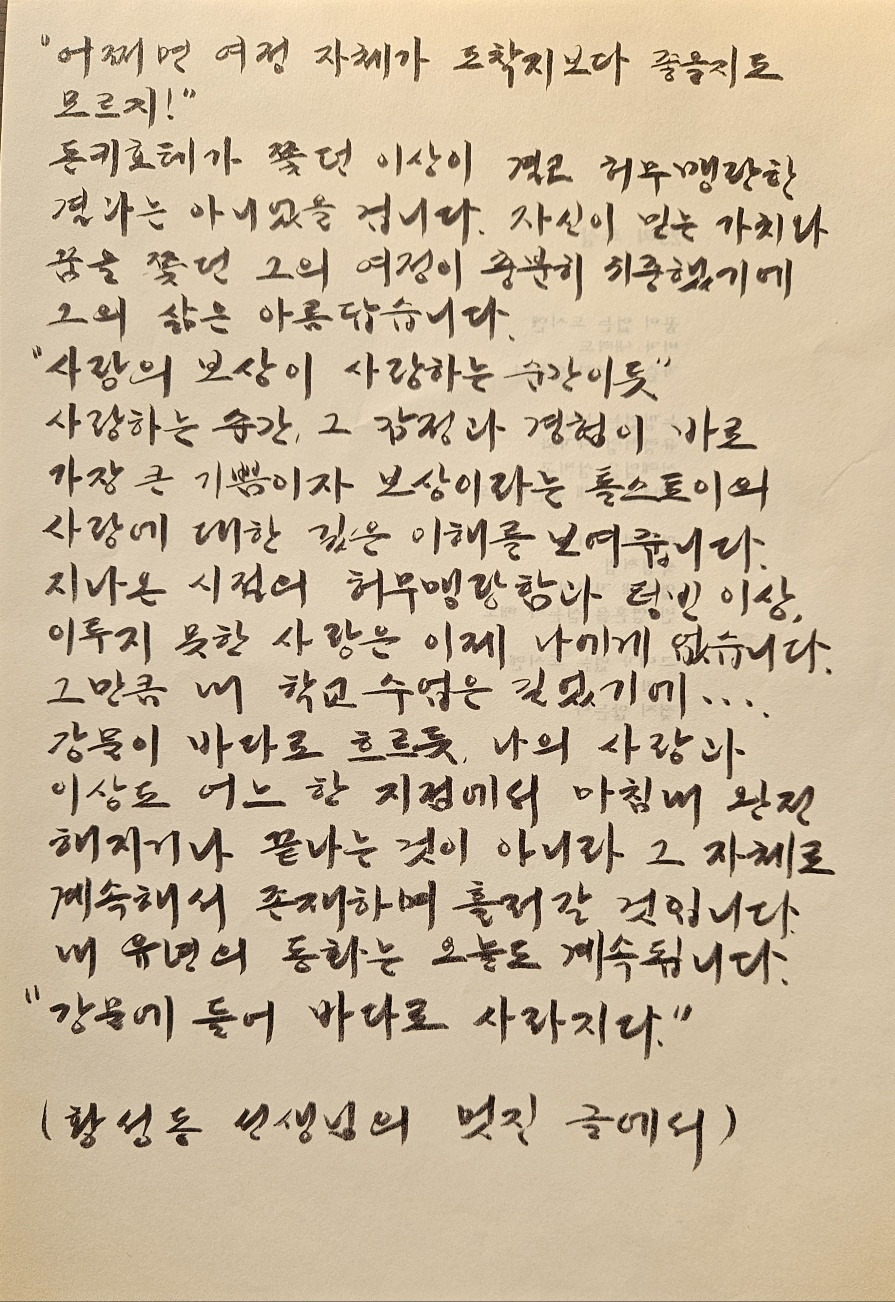 "어쩌면 여정 자체가 도착지보다 좋을지도
모르지!"
돈키호테가 쫓던 이상이 결코 허무맹랑한
결과는 아니었을 겁니다. 자신이 믿는 가치와
꿈을 쫓던 그의 여정이 충분히 귀중했기에
그의 삶은 아름답습니다.
"사랑의 보상이 사랑하는 순간이듯"
사랑하는 순간, 그 감정과 경험이 바로
가장 큰 기쁨이자 보상이라는 톨스토이의
사랑에 대한 깊은 이해를 보여줍니다.
지나온 시절의 허무맹랑함과 텅빈 이상,
이루지 못한 사랑은 이제 나에게 없습니다.
그만큼 내 학교 수업은 길었기에....
강물이 바다로 흐르듯, 나의 사랑과
이상도 어느 한 지점에서 마침내 완전
해지거나 끝나는 것이 아니라 그 자체로
계속해서 존재하며 흘러갈 것입니다.
내 유년의 동화는 오늘도 계속됩니다.
"강물에 들어 바다로 사라지다."
(황성동 선생님의 멋진 글에서)